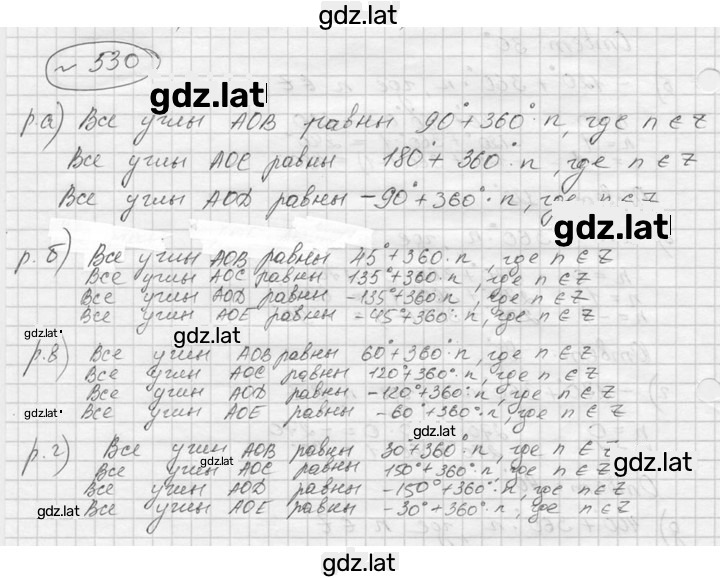 gdz.lat
№ 530
gdz.lat
р.а) Все углы AOB равны 90°+360°·n, где n∈Z
Все углы AOC равны 180°+360°·n, где n∈Z
Все углы AOD равны -90°+360°·n, где n∈Z
gdz.lat
р.б) Все углы AOB равны 45°+360·n, где n∈Z
Все углы AOC равны 135°+360°·n, где n∈Z
Все углы AOD равны -135°+360°·n, где n∈Z
Все углы AOE равны -45°+360°·n, где n∈Z
gdz.lat
gdz.lat
р.в) Все углы AOB равны 60°+360°·n, где n∈Z
Все углы AOC равны 120°+360°·n, где n∈Z
Все углы AOD равны -120°+360°·n, где n∈Z
gdz.lat
Все углы AOE равны -60°+360°·n, где n∈Z
gdz.lat
р.г) Все углы AOB равны 30°+360°·n, где n∈Z
gdz.lat
gdz.lat
Все углы AOC равны 150°+360°·n, где n∈Z
Все углы AOD равны -150°+360°·n, где n∈Z
gdz.lat
Все углы AOE равны -30°+360°·n, где n∈Z
gdz.lat